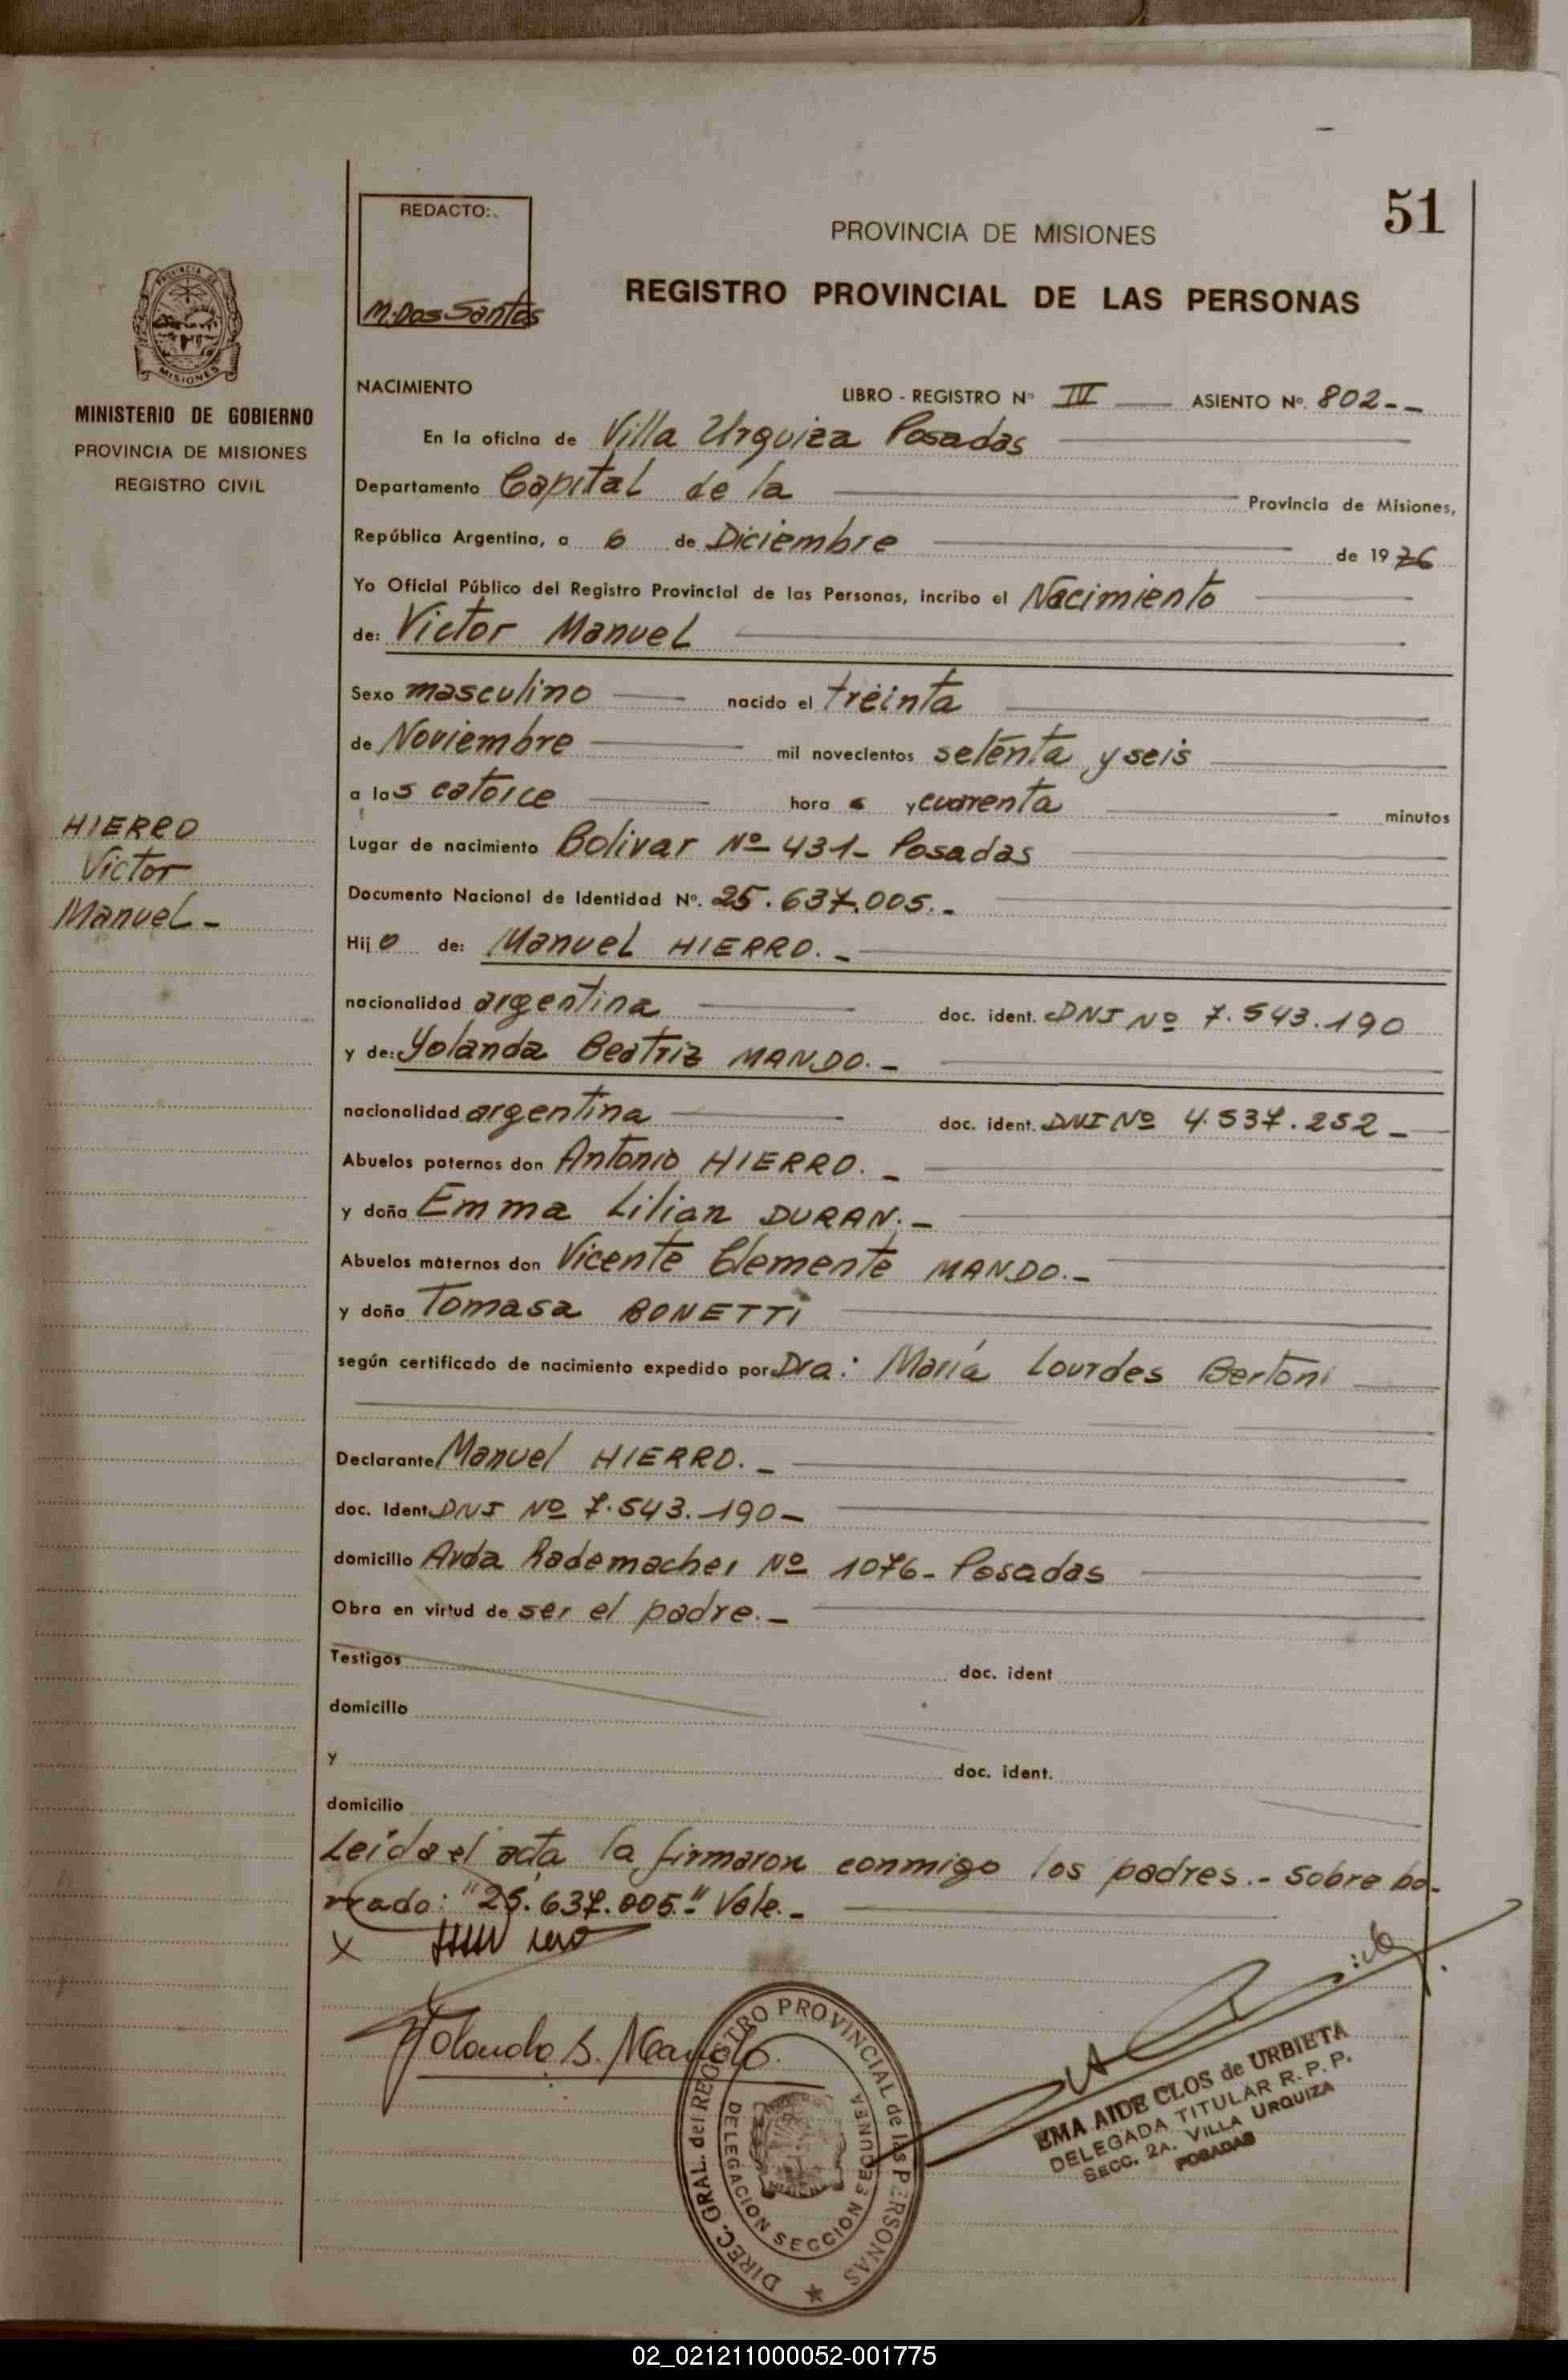 51
REDACTO:
M. Dos Santos
PROVINCIA DE MISIONES
REGISTRO PROVINCIAL DE LAS PERSONAS
PROVINCIA DE
MISIONES
MINISTERIO DE GOBIERNO
PROVINCIA DE MISIONES
REGISTRO CIVIL
NACIMIENTO LIBRO - REGISTRO Nº IV ASIENTO Nº. 802--
En la oficina de Villa Urquiza Posadas
Departamento Capital de la Provincia de Misiones,
República Argentina, a 6 de Diciembre de 1976
Yo Oficial Público del Registro Provincial de las Personas, incribo el Nacimiento
de: Victor Manuel
Sexo masculino nacido el treinta
de Noviembre mil novecientos setenta y seis
a las catorce hora s y cuarenta minutos
Lugar de nacimiento Bolivar Nº 431- Posadas
Documento Nacional de Identidad Nº. 25.637.005.-
Hijo de: Manuel HIERRO.-
nacionalidad argentina doc. ident. DNI Nº 7.543.190
y de: Yolanda Beatriz MANDO.-
nacionalidad argentina doc. ident. DNI Nº 4.537.252-
Abuelos paternos don Antonio HIERRO.-
y doña Emma Lilian DURAN.-
Abuelos maternos don Vicente Clemente MANDO.-
y doña Tomasa BONETTI
según certificado de nacimiento expedido por Dra: María Lourdes Bertoni
Declarante Manuel HIERRO.-
doc. Ident. DNI Nº 7.543.190-
domicilio Avda Rademacher Nº 1076- Posadas
Obra en virtud de ser el padre.-
Testigos doc. ident
domicilio
y doc. ident.
domicilio
Leída el acta la firmaron conmigo los padres.- Sobre bo-
rrado: "25.637.005." Vale.-
HIERRO
Victor
Manuel-
X
Yolanda B. Mando
DIREC. GRAL. del REGISTRO PROVINCIAL de las PERSONAS
DELEGACION SECCION SEGUNDA
EMA AIDE CLOS de URBIETA
DELEGADA TITULAR R. P. P.
SECC. 2A. VILLA URQUIZA
POSADAS
02_021211000052-001775